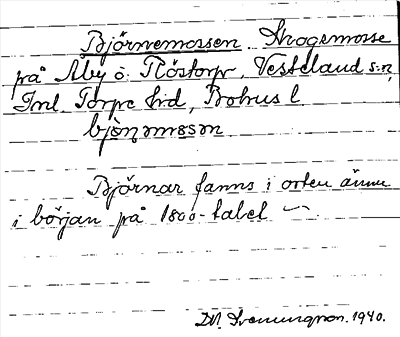 Björnemossen Skogsmosse
på Åby o. Röstorp, Vesteland s:n,
Inl. Torpe h:d, Bohus l
bjönmosn
Björnar fanns i orten ännu
i början på 1800-talet
1940.